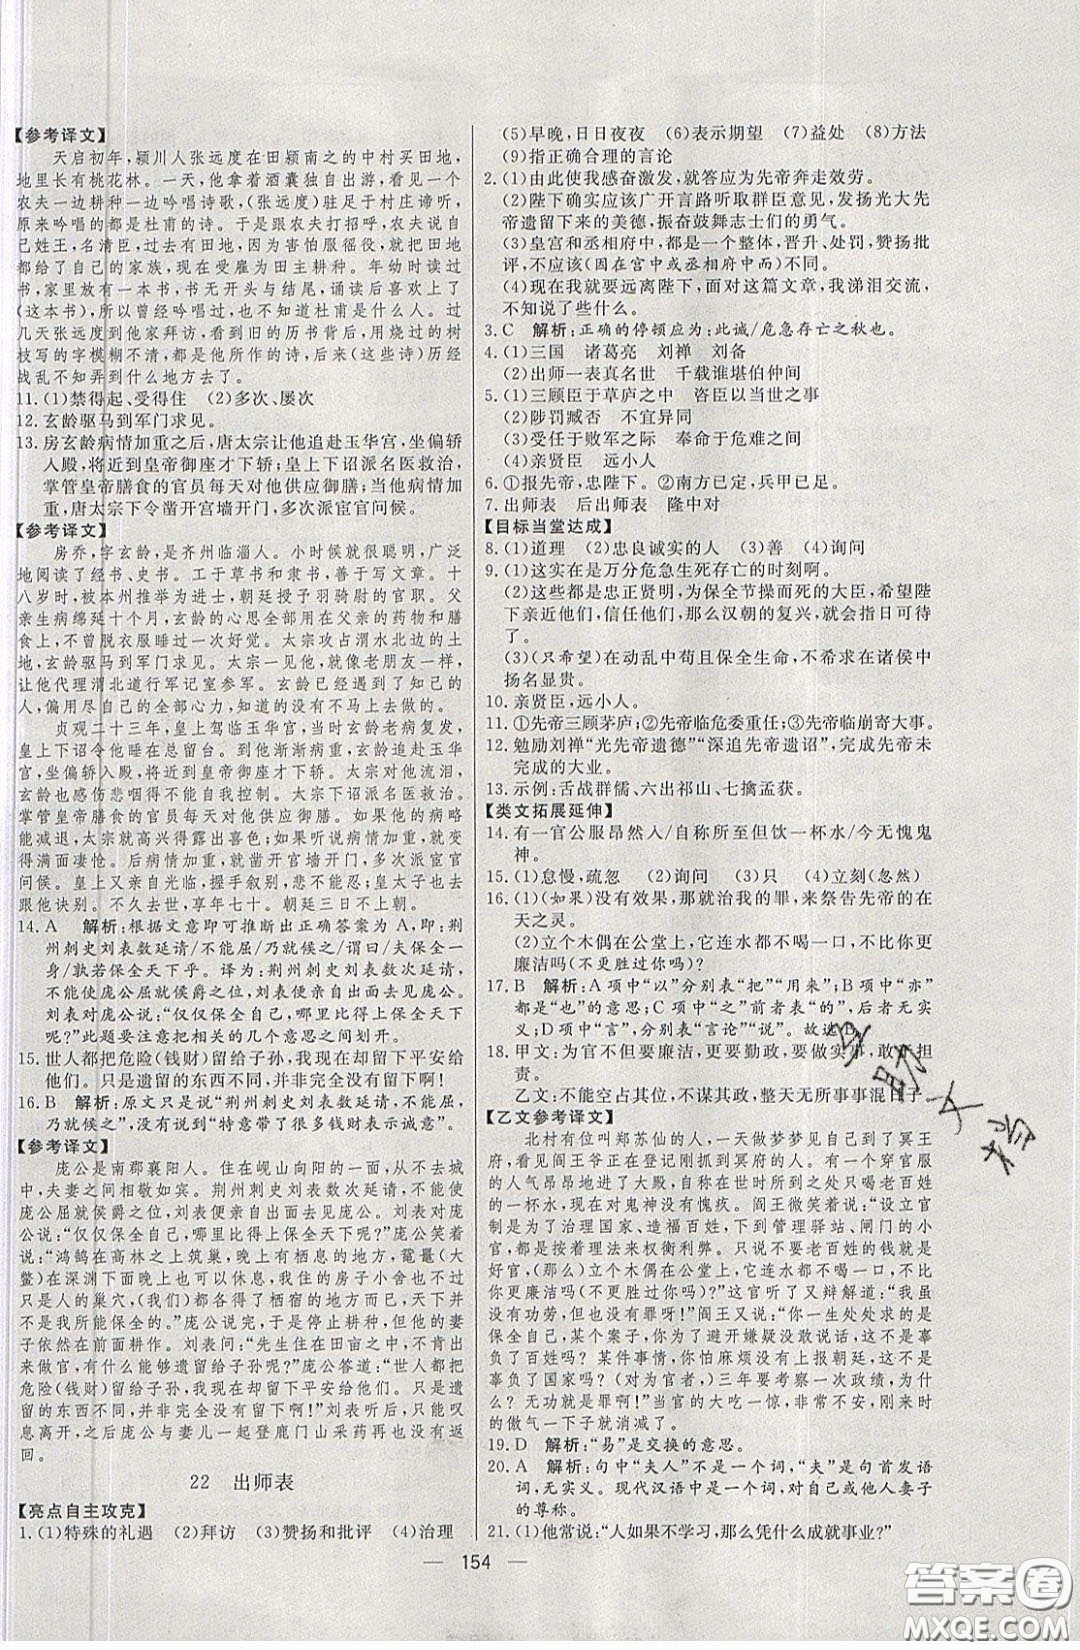 【参考译文】
天启初年,颍川人张远度在田颍南之的中村买田地,
地里长有桃花林。一天,他拿着酒囊独自出游,看到一个
农夫一边耕种一边吟唱诗歌,(张远度)驻足于村庄谛听,
原来吟唱的是杜甫的诗。张远度跟农夫打招呼,农夫说自
己姓王,名清臣,电曾经有田地,因害怕服徭役,把田地
都给了自己的家族,而受雇为田主耕种。年幼时读过一
书,家里放有一本书,书无开头与结尾,诵读后喜欢上了
(这本书),所以曾经吟唱过,也不知道杜甫是什么人。过
几天张远度到他家拜访,看到旧的历书背面用烧过的树
枝写的字模糊不清,都是他作的诗,后来(这些诗)历经
战乱不知弄到什么地方了。
11.(1)禁得起、受得住 (2)多次、屡次
12.玄龄驱马到军门求见。
13.房玄龄病情加重之后,唐太宗让他追赴玉华宫,坐偏轿
入殿,将近到皇帝御座才下轿;皇上下诏派名医救治,
掌管皇帝膳食的官员每天对他供应御膳;病情加重
时,唐太宗下令凿开宫墙开门,多次派宦官问候。
【参考译文】
房乔,字玄龄,是齐州临淄人。小时候就很聪明,广泛
地阅读了经书、史书。工于草书和隶书,善于写文章。十
八岁时,被本州推举为进士,朝廷授予羽骑尉的官职。父
亲生病绵延十个月,玄龄的心思全部用在父亲的药物和膳
食上,不曾脱衣服睡过一次好觉。太宗攻占渭水北边的土地,
玄龄驱马到军门求见。太宗一见他,就像老朋友一样,
让他代理渭北道行军记室参军。玄龄已经遇到知己,
就用尽自己的全部心力,知道的没有不马上去做的。
贞观二十三年,皇上驾临玉华宫,当时玄龄老病复发,
皇上下诏令他睡在床上处理事务。玄龄追赴玉华
宫,坐偏轿入殿,将到皇帝御座才下轿。太宗对他流泪,
玄龄也感动哽咽不能自我控制。太宗下诏派名医救治,
掌管皇帝膳食的官员每天供应御膳。如果他的病略
微好转,太宗便会高兴得露出喜色;如果病情加重,又变
得满面凄怆。后病情加重,就凿开宫墙开门,多次派宦官
问候。皇上又亲自光临,握手叙别,悲不自禁;皇太子也
跟他诀别。不久去世,享年七十。朝廷三日不上朝。
14.A 解析:根据文意即可推断出正确答案为A,即:荆
州刺史刘表数延请/不能屈/乃就候之/谓曰/夫保全一
身/孰若保全天下乎。译为:荆州刺史刘表数次延请,
不能使庞公屈居侯爵之位,刘表便亲自去见庞公。
刘表对庞公说:“仅仅保全自己,哪里比得上保全天下
呢?”此题要注意把相关的几个意思之间划开。
15.世人都把危险(钱财)留给子孙,我现在却留下平安给
他们。只是遗留的东西不同,并非完全没有留下啊!
16.B 解析:原文只是说“荆州刺史刘表数次延请,不能屈,
乃就候之”,没有说“特意带了很多钱财表示诚意”。
【参考译文】
庞公是南郡襄阳人。住在岘山向阳的一面,从不去城
中,夫妻之间相敬如宾。荆州刺史刘表数次延请,不能使
庞公屈居侯爵之位,刘表便亲自去见庞公。刘表对庞公
说:“仅仅保全自己,哪里比得上保全天下呢?”庞公笑着
说:“鸿鹄在高林之上筑巢,晚上有栖息的地方,鼋鼍(大
鳖)在深渊下面晚上也有住宿的地方,我的房子小舍也可算
人的巢穴,(我们)各得了栖宿的地方罢了,天下本来就
不是我所能保全的。”庞公说完,于是停止耕种,但他的妻
子依然在前面耕作。刘表问:“先生住在田亩之中,不肯去
做官,有什么能够遗留给子孙呢?”庞公答道:“世人都把
危险(钱财)留给子孙,我现在却留下平安给他们。只是遗
留的东西不同,并非完全没有留下啊!”刘表听后,叹息而
去。之后庞公与妻儿一起登鹿门山采药再也没有返
回。
22 出师表
【亮点自主攻克】
1.(1)特殊的礼遇 (2)拜访 (3)赞扬和批评 (4)治理
(5)早晚,日日夜夜 (6)表示期望 (7)益处 (8)方法
(9)指正确合理的言论
2.(1)由此使我感奋激发,就答应为先帝奔走效劳。
(2)陛下确实应该广开言路听取群臣意见,发扬光大先
帝遗留下来的美德,振奋鼓舞志士们的勇气。
(3)皇宫和丞相府中,都是一个整体,晋升、处罚,赞扬批
评,不应该(因在宫中或在丞相府中而)不同。
(4)现在我就要远离陛下,面对这篇文章,我涕泪交流,
不知说了些什么。
3.C 解析:正确的停顿应为:此诚/危急存亡之秋也。
4.(1)三国 诸葛亮 刘禅 刘备
(2)出师一表真名世 千载谁堪伯仲间
5.(1)三顾臣于草庐之中 咨臣以当世之事
(2)陟罚臧否 不宜异同
(3)受任于败军之际 奉命于危难之间
(4)亲贤臣 远小人
6.①报先帝,忠陛下。②南方已定,兵甲已足。
7.出师表 后出师表 隆中对
【目标当堂达成】
8.(1)道理 (2)忠良诚实的人 (3)善 (4)询问
9.(1)这实在是万分危急生死存亡的时刻啊。
(2)这些都是忠正贤明,为保全节操而死的大臣,希望陛
下亲近他们,信任他们,那么汉朝的复兴,就会指日可待
了。
(3)(只希望)在动乱中苟且保全生命,不希求在诸侯中
扬名显贵。
10.亲贤臣,远小人。
11.①先帝三顾茅庐;②先帝临危委重任;③先帝临崩寄大事。
12.勉励刘禅“光先帝遗德”“深追先帝遗诏”,完成先帝未
完成的大业。
13.示例:舌战群儒、六出祁山、七擒孟获。
【类文拓展延伸】
14.有一官公服昂然人/自称所至但饮一杯水/今无愧鬼
神。
15.(1)怠慢,疏忽 (2)询问 (3)只 (4)立刻(忽然)
16.(1)(如果)没有效果,那就治我的罪,来祭告先帝的在
天之灵。
(2)立个木偶在公堂上,它连水都不喝一口,不比你更
廉洁吗(不更比你廉洁吗)?
17.B 解析:A项中“以”分别表“把”“用来”;B项中“亦”
都是“也”的意思;C项中“之”前者表“的”,后者无实
义;D项中“言”,分别表“言论”“说”。故选B。
18.甲文:为官不但要廉洁,更要勤政,要做实事,敢于担
责。
乙文:不能空占其位,不谋其政,整天无所事事混日子。
【乙文参考译文】
北村有位叫郑苏仙的人,一天做梦梦见自己到了冥王
府,看见阎王爷子正在登记刚到冥府的人。有一个穿官服
的人气昂昂地进了大殿,声称自己所到之处只喝老百姓
的一杯水,现在对鬼神没有愧疚。阎王微笑着说:“设立官
制是为了治理国家、造福百姓,下到管理驿站、闸门的小
官,都是按着理法来权衡利弊。只是说不要老百姓的钱
就是好官,那么立个木偶在公堂上,它连水都不喝一口,不
比你更廉洁吗(不更比你廉洁吗)?”这官又辩解道:“我虽
然没有功劳,但也没有罪呀!”阎王又说:“你一生处处求的是
保全自己,某个案子,你为了避开嫌疑没敢说话,这不是
辜负了百姓吗?某件事情,你怕麻烦没有上报朝廷,这不是
辜负了国家吗?(对为官者,)三年要考察一次政绩,为什
么?没有功劳就是罪啊!”当官的大吃一惊,锋芒毕露
的傲气一下子就消减了。
19.D 解析:“易”是交换的意思。
20.A 解析:文中“夫人”不是一个词,“夫”是句首发语
词,无实义。现代汉语中是一个词,是对自己或他人妻子
的尊称。
21.(1)他常说:“人如果不学习,那么凭什么成就事业?”
154
答案圈
MXQE.COM